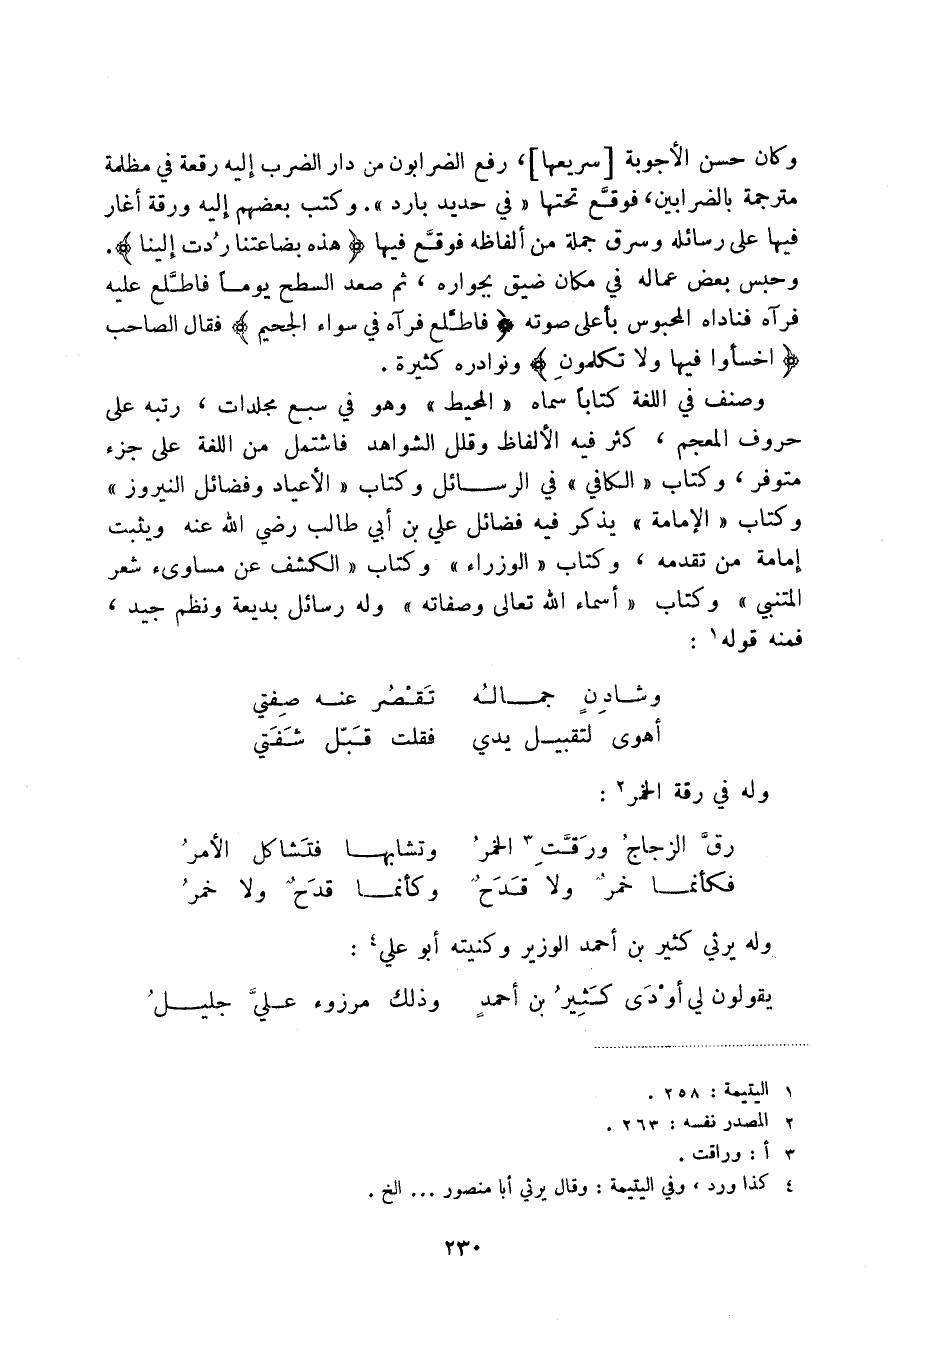 وكان حسن الأجوبة [سريعها]، رفع الضرابون من دار الضرب إليه رقعة في مظلمة
مترجمة بالضرابين، فوقَّع تحتها « في حديد بارد ». وكتب بعضهم إليه ورقة أغار
فيها على رسائله وسرق جملة من ألفاظه فوقَّع فيها ﴿ هذه بضاعتنا رُدت إلينا ﴾.
وحبس بعض عماله في مكان ضيق بجواره ، ثم صعد السطح يوماً فاطلَّع عليه
فرآه فناداه المحبوس بأعلى صوته ﴿ فاطلَّع فرآه في سواء الجحيم ﴾ فقال الصاحب
﴿ اخسأوا فيها ولا تكلمونِ ﴾ ونوادره كثيرة .
وصنف في اللغة كتاباً سماه « المحيط » وهو في سبع مجلدات ، رتبه على
حروف المعجم ، كثر فيه الألفاظ وقلل الشواهد فاشتمل من اللغة على جزء
متوفر ، وكتاب « الكافي » في الرسائل وكتاب « الأعياد وفضائل النيروز »
وكتاب « الإمامة » يذكر فيه فضائل علي بن أبي طالب رضي الله عنه ويثبت
إمامة من تقدمه ، وكتاب « الوزراء » وكتاب « الكشف عن مساوىء شعر
المتنبي » وكتاب « أسماء الله تعالى وصفاته » وله رسائل بديعة ونظم جيد ،
فمنه قوله١ :
وشادِنٍ جمالُه تَقْصُر عنه صِفتي
أهوى لتقبيل يدي فقلت قَبّل شَفَتي
وله في رقة الخمر٢ :
رقَّ الزجاجُ ورَقَّتِ٣ الخمرُ وتشابها فتَشاكل الأمرُ
فكأنما خمرٌ ولا قَدَحٌ وكأنما قدَحٌ ولا خمرُ
وله يرثي كثير بن أحمد الوزير وكنيته أبو علي٤ :
يقولون لي أوْدَى كَثِيرُ بن أحمدٍ وذلك مرزوء عليَّ جليلُ
١ اليتيمة : ٢٥٨ .
٢ المصدر نفسه : ٢٦٣ .
٣ أ : وراقت .
٤ كذا ورد ، وفي اليتيمة : وقال يرثي أبا منصور ... الخ .
٢٣٠